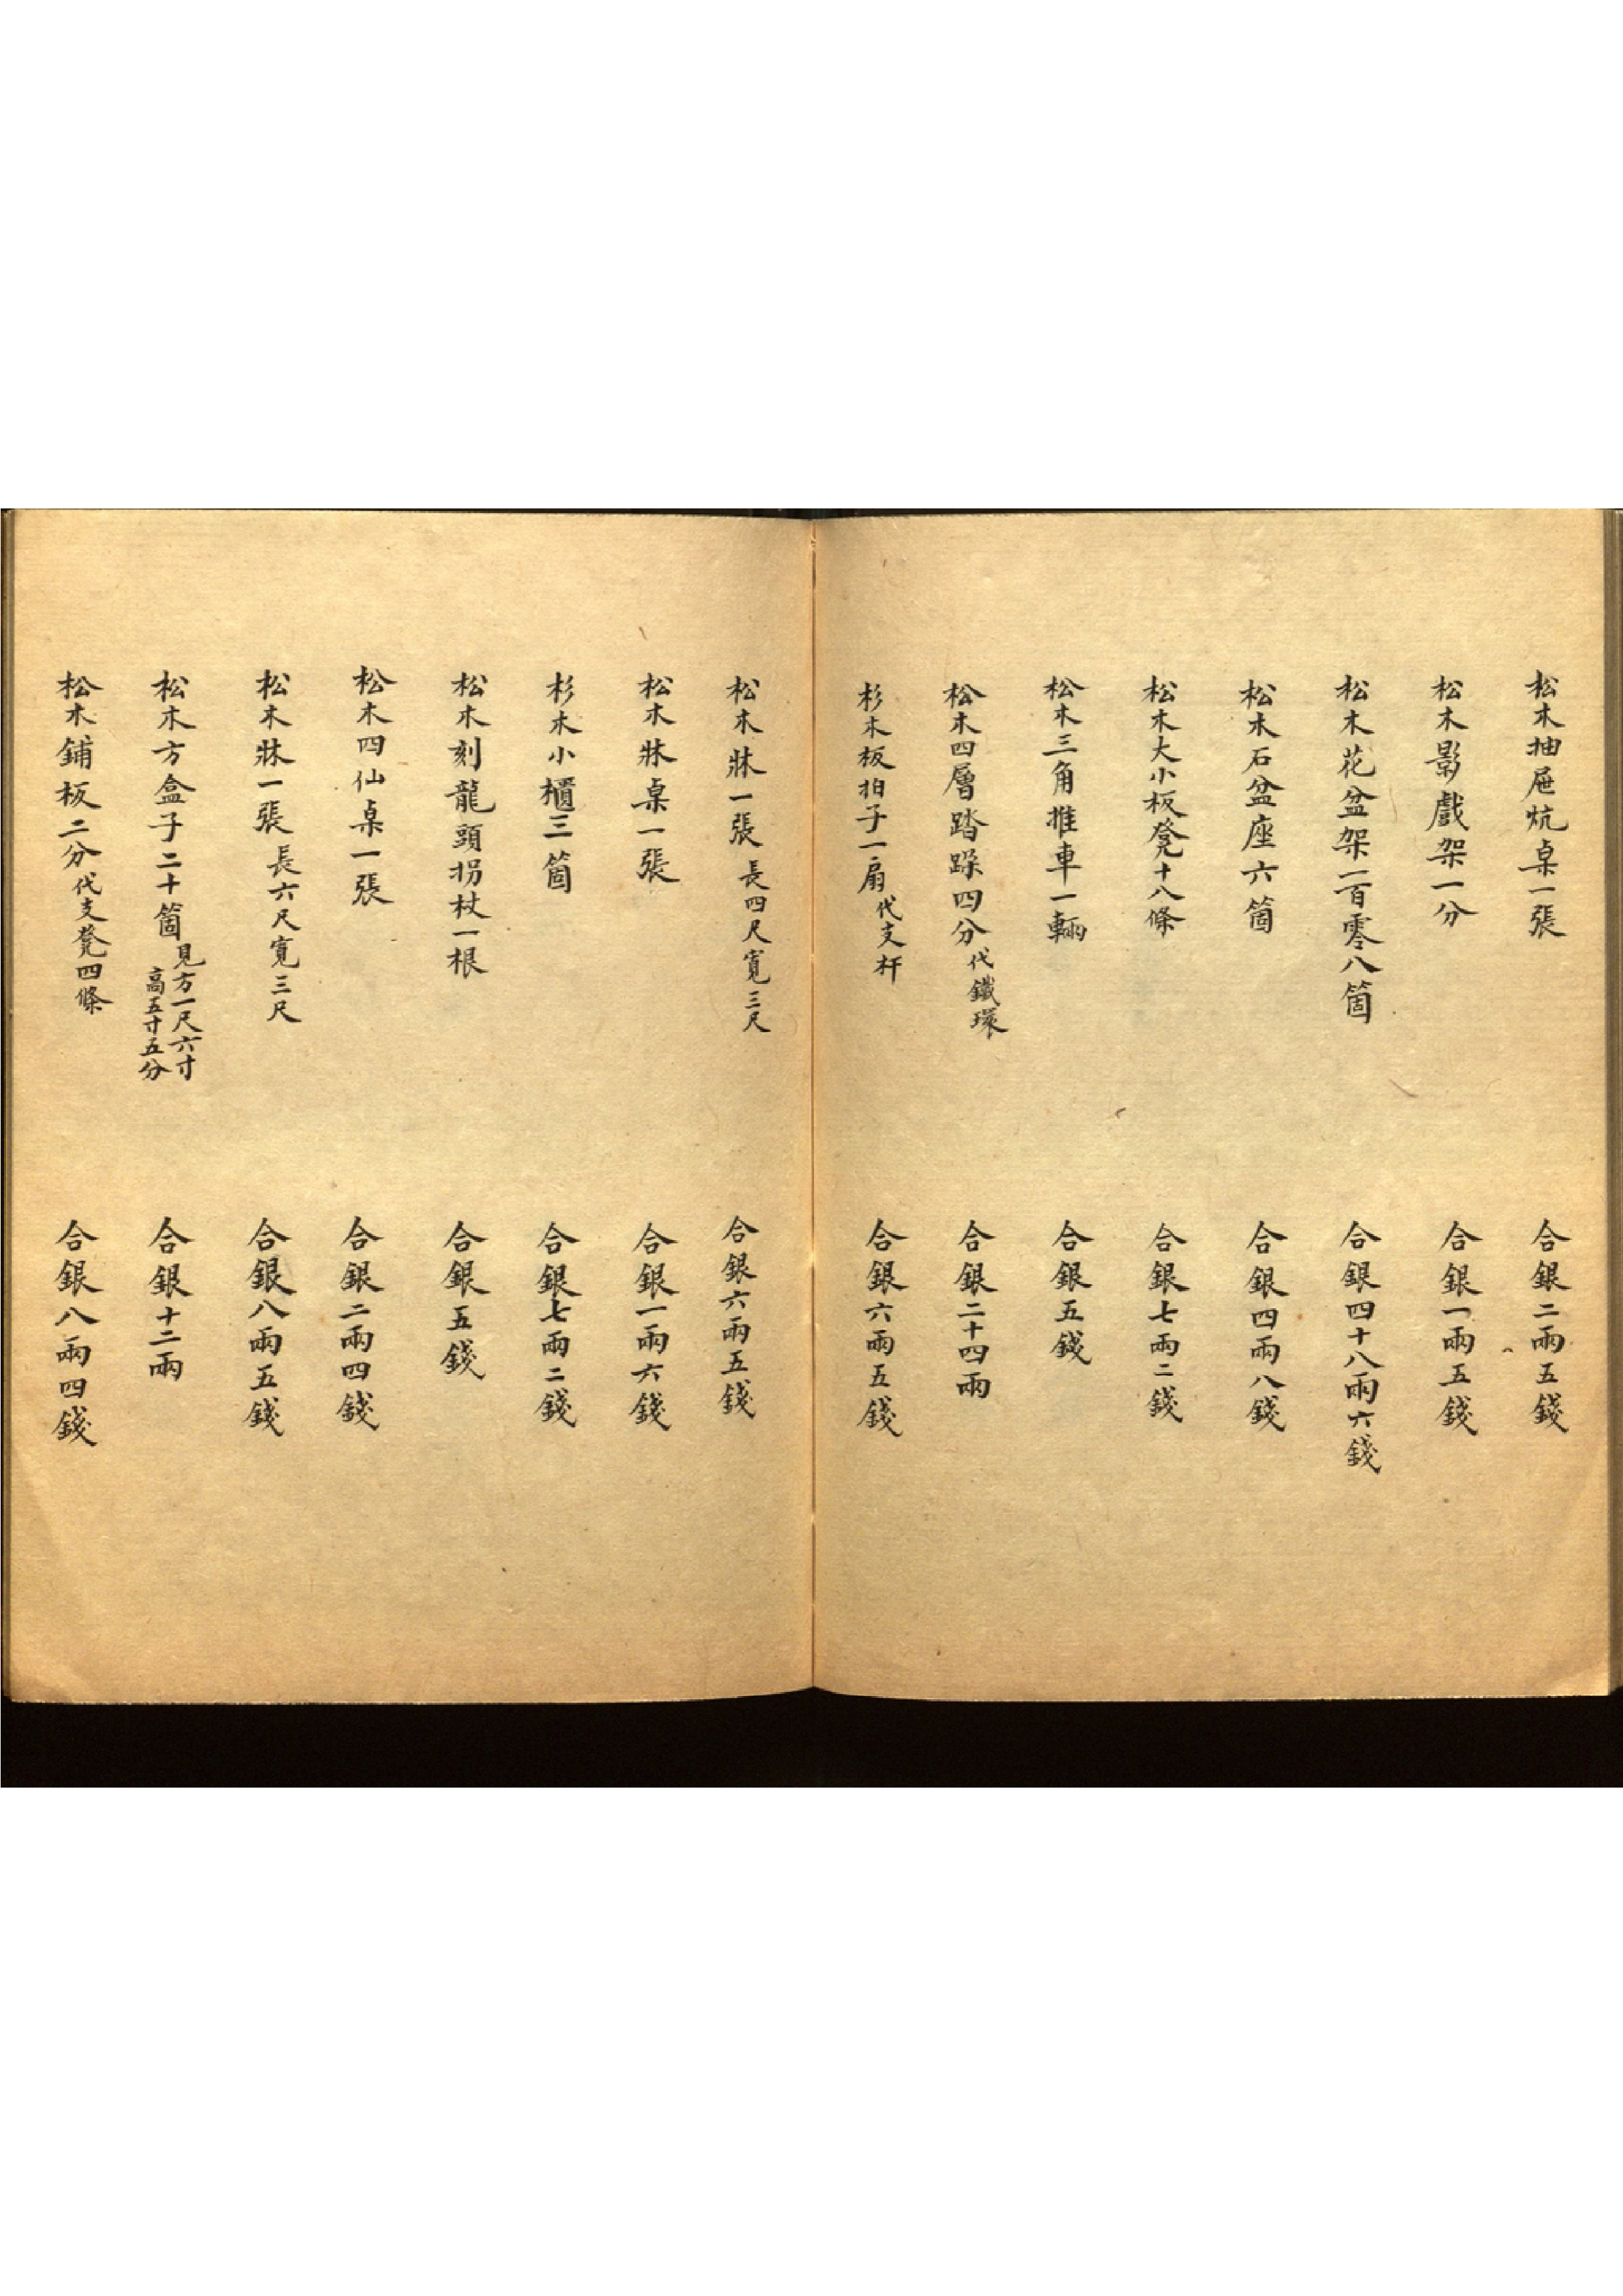 松木抽屜炕桌一張 合銀二兩五錢
松木影戲架一分 合銀一兩五錢
松木花盆架一百零八箇 合銀四十八兩六錢
松木石盆座六箇 合銀四兩八錢
松木大小板凳十八條 合銀七兩二錢
松木三角推車一輛 合銀五錢
松木四層踏跺四分代鐵環 合銀二十四兩
杉木板拍子一扇代支杆 合銀六兩五錢
松木牀一張長四尺寬三尺 合銀六兩五錢
松木牀桌一張 合銀一兩六錢
杉木小櫃三箇 合銀七兩二錢
松木刻龍頭拐杖一根 合銀五錢
松木四仙桌一張 合銀二兩四錢
松木牀一張長六尺寬三尺 合銀八兩五錢
松木方盒子二十箇見方一尺六寸高五寸五分 合銀十二兩
松木鋪板二分代支凳四條 合銀八兩四錢